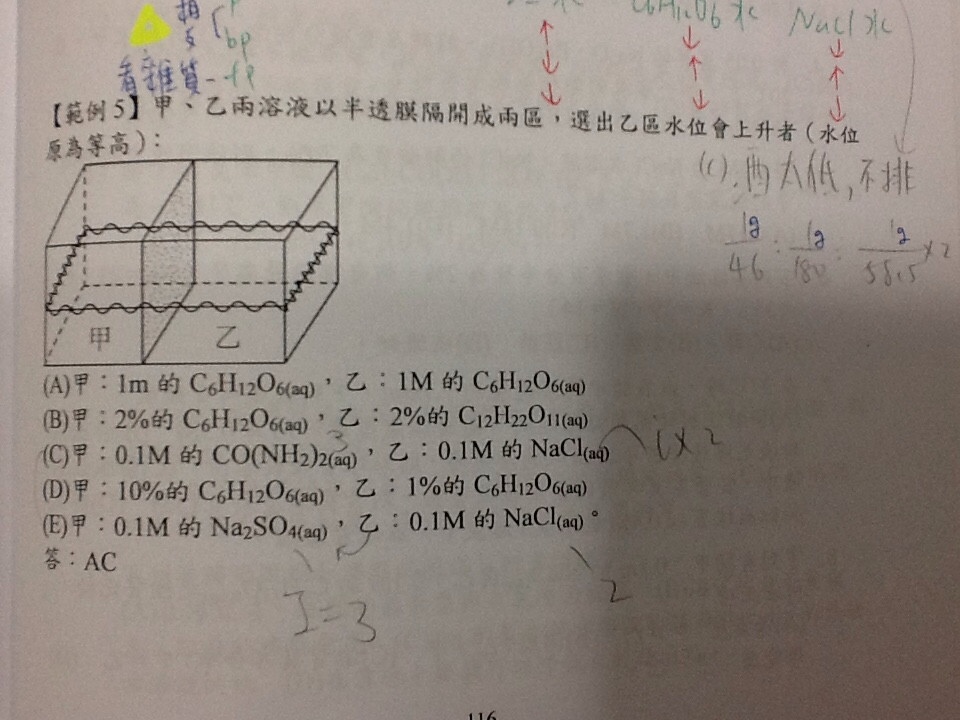 相反
bp
看雜質-fp
C6H12O6水
NaCl水
【範例5】甲、乙兩溶液以半透膜隔開成兩區，選出乙區水位會上升者（水位
原為等高）：
(C).西太低,不排
1g/46 : 1g/180 : 1g/58.5 ×2
甲 乙
(A)甲：1m 的 C6H12O6(aq)，乙：1M 的 C6H12O6(aq)
(B)甲：2%的 C6H12O6(aq)，乙：2%的 C12H22O11(aq)
(C)甲：0.1M 的 CO(NH2)2(aq)，乙：0.1M 的 NaCl(aq) i×2
(D)甲：10%的 C6H12O6(aq)，乙：1%的 C6H12O6(aq)
(E)甲：0.1M 的 Na2SO4(aq)，乙：0.1M 的 NaCl(aq)。
答：AC
I=3
2
116